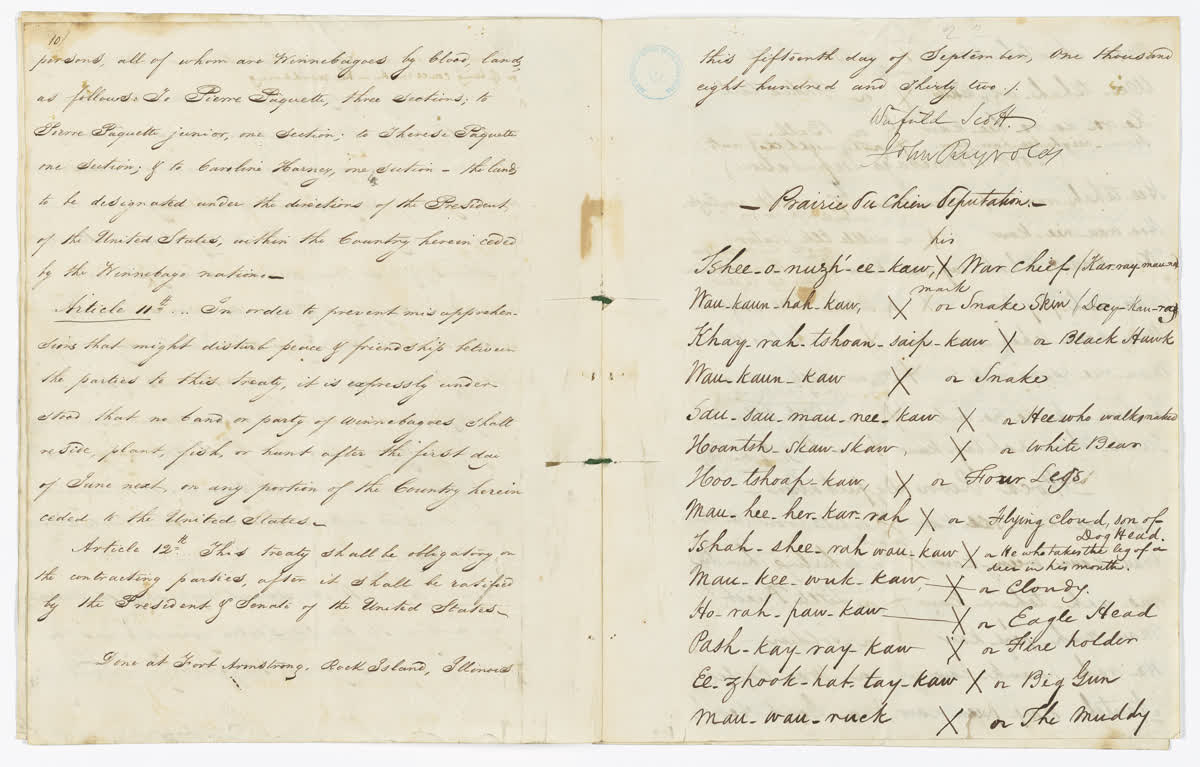 10
persons, all of whom are Winnebagoes by blood, land,
as follows: To Pierre Paquette, three sections; to
Pierre Paquette junior, one section; to Therese Paquette
one section; & to Caroline Harney, one section – the lands
to be designated under the directions of the President
of the United States, within the Country herein ceded
by the Winnebago nation.—
Article 11th .. In order to prevent misapprehen-
sions that might disturb peace & friendship between
the parties to this treaty, it is expressly under-
stood that no band or party of Winnebagoes shall
reside, plant, fish, or hunt after the first day
of June next, on any portion of the Country herein
ceded to the United States.—
Article 12th This treaty shall be obligatory on
the contracting parties, after it shall be ratified
by the President & Senate of the United States—
Done at Fort Armstrong, Rock Island, Illinois
this fifteenth day of September, one thousand
eight hundred and thirty two /.
Winfield Scott.
John Reynolds
— Prairie Du Chien Deputation —
his
Tshee-o-nuzh-ee-kaw, X War Chief (Kar-ray-mau-nee
mark
Wau-kaun-hah-kaw, X or Snake Skin (Day-kau-ray)
Khay-rah-tshoan-saip-kaw X or Black Hawk
Wau-kaun-kaw X or Snake
Sau-sau-mau-nee-kaw X or Hee who walks naked
Hoantsh-skaw-skaw, X or White Bear
Hoo-tshoap-kaw, X or Four Legs
Mau-hee-her-kar-rah X or Flying Cloud, son of
Dog Head.
Tshah-shee-rah wau-kaw X or He who takes the leg of a
deer in his mouth.
Mau-kee-wuk-kaw, X or Cloudy.
Ho-rah-paw-kaw X or Eagle Head
Pash-kay-ray-kaw X or Fire holder
Ee-zhook-hat-tay-kaw X or Big Gun
Mau-wau-ruck X or The Muddy